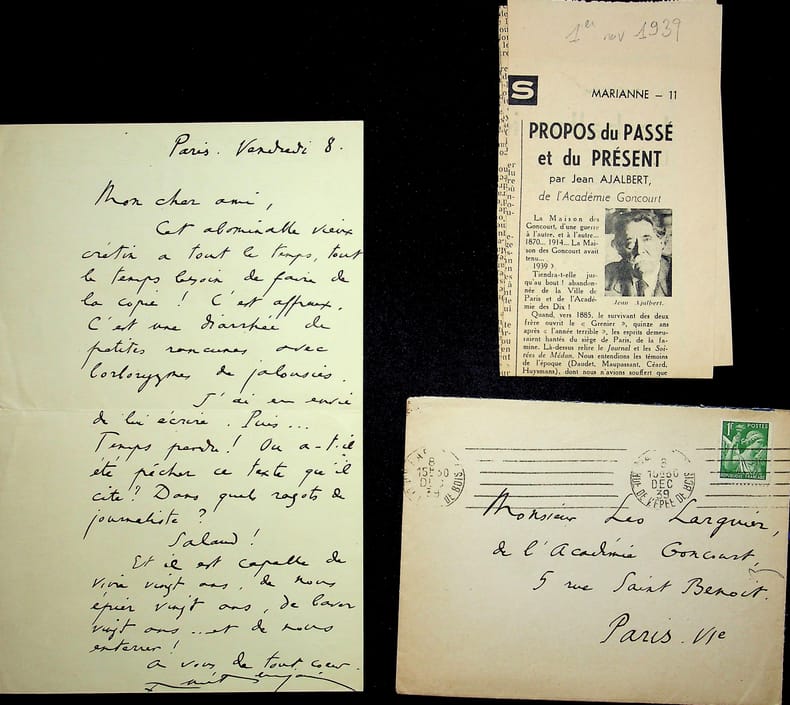 Paris. Vendredi 8.
Mon cher ami,
Cet abominable vieux
crétin a tout le temps, tout
le temps besoin de faire de
la copie ! C'est affreux.
C'est une diarrhée de
petites rancunes avec
borborygmes de jalousies.
J'ai eu envie
de lui écrire. Puis...
Temps perdu ! Où a-t-il
été pêcher ce texte qu'il
cite ? Dans quels ragots de
journaliste ?
Salaud !
Et il est capable de
vivre vingt ans, de nous
épier vingt ans, de baver
vingt ans... et de nous
enterrer !
A vous de tout coeur
1er nov 1939
S
MARIANNE – 11
PROPOS du PASSÉ
et du PRÉSENT
par Jean AJALBERT,
de l'Académie Goncourt
La Maison des
Goncourt, d'une guerre
à l'autre, et à l'autre...
1870... 1914... La Mai-
son des Goncourt avait
tenu...
1939 ?
Tiendra-t-elle jus-
qu'au bout ! abandon-
née de la Ville de
Paris et de l'Acadé-
mie des Dix !
Jean Ajalbert.
Quand, vers 1885, le survivant des deux
frère ouvrit le « Grenier », quinze ans
après « l'année terrible », les esprits demeu-
raient hantés du siège de Paris, de la fa-
mine. Là-dessus relire le Journal et les Soi-
rées de Médan. Nous entendions les témoins
de l'époque (Daudet, Maupassant, Céard,
Huysmans), dont nous n'avions souffert que
8
15H30
DEC
39
8
DEC
39
RUE DE L'EPEE DE BOIS
1F POSTES
REPUBLIQUE FRANÇAISE
Monsieur Leo Larguier,
de l'Académie Goncourt
5 rue Saint Benoit.
Paris. VIe